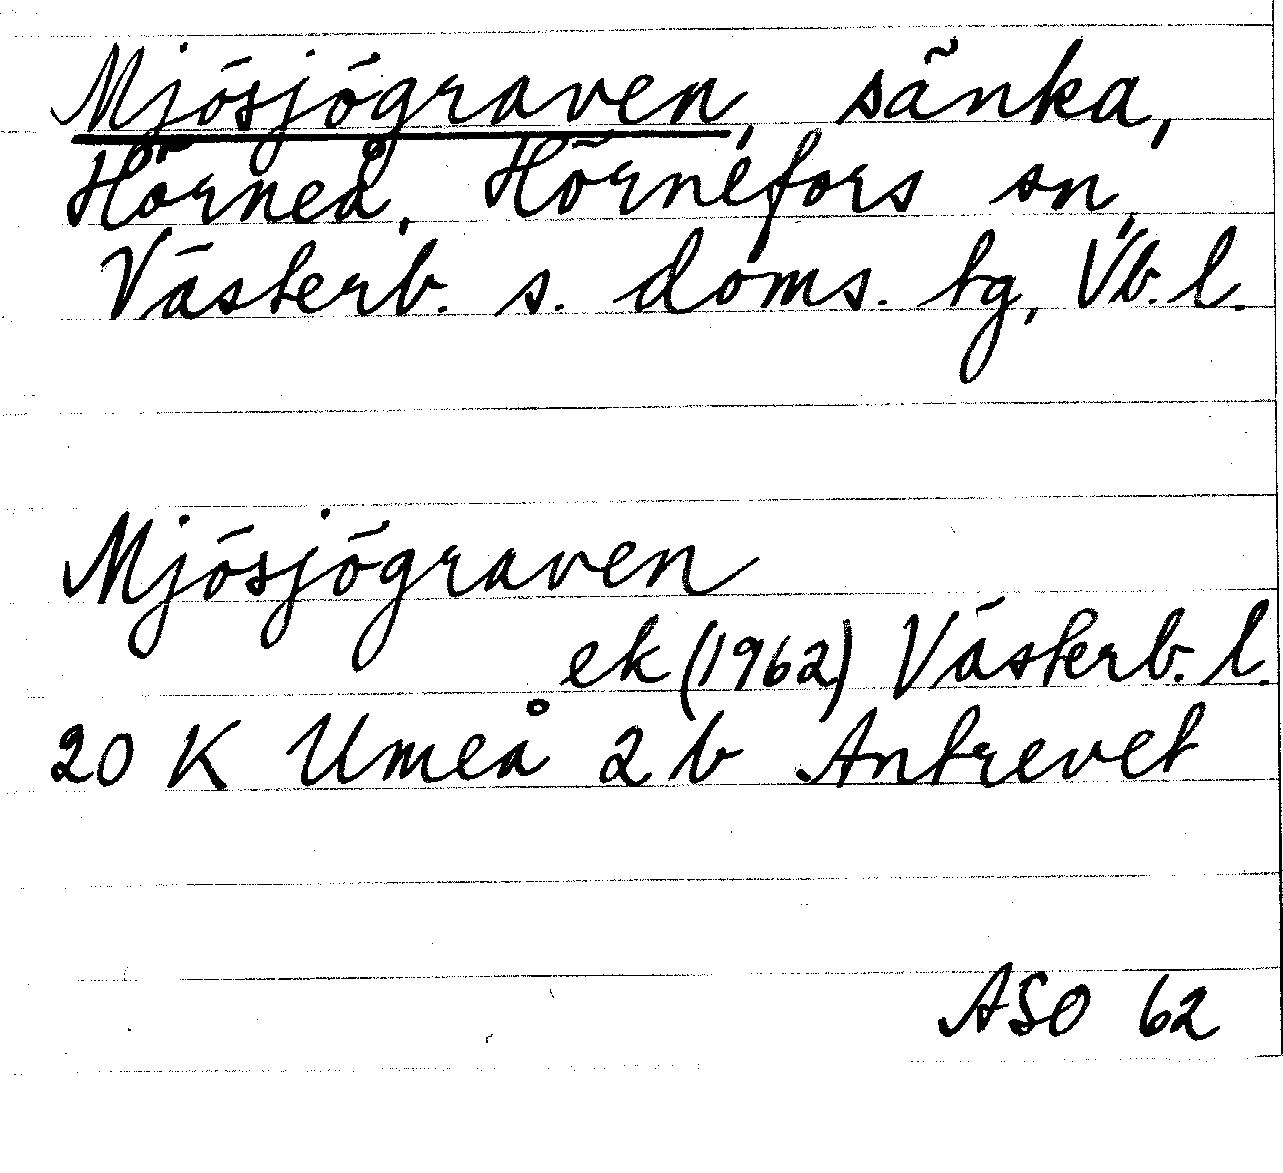 Mjösjögraven, sänka,
Hörneå, Hörnefors sn,
Västerb. s. doms. tg, Vb. l.
Mjösjögraven
ek (1962) Västerb. l.
20 K Umeå 2 b Antrevet
ASO 62